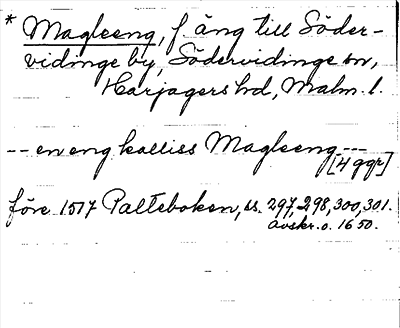 * Magleeng, f. äng till Söder-
vidinge by, Södervidinge sn,
Harjagers hd, Malm. l.
-- en eng kalliss Magleeng ---
[4 ggr]
före 1517 Palteboken, ss. 297, 298, 300, 301.
Avskr. o. 1650.